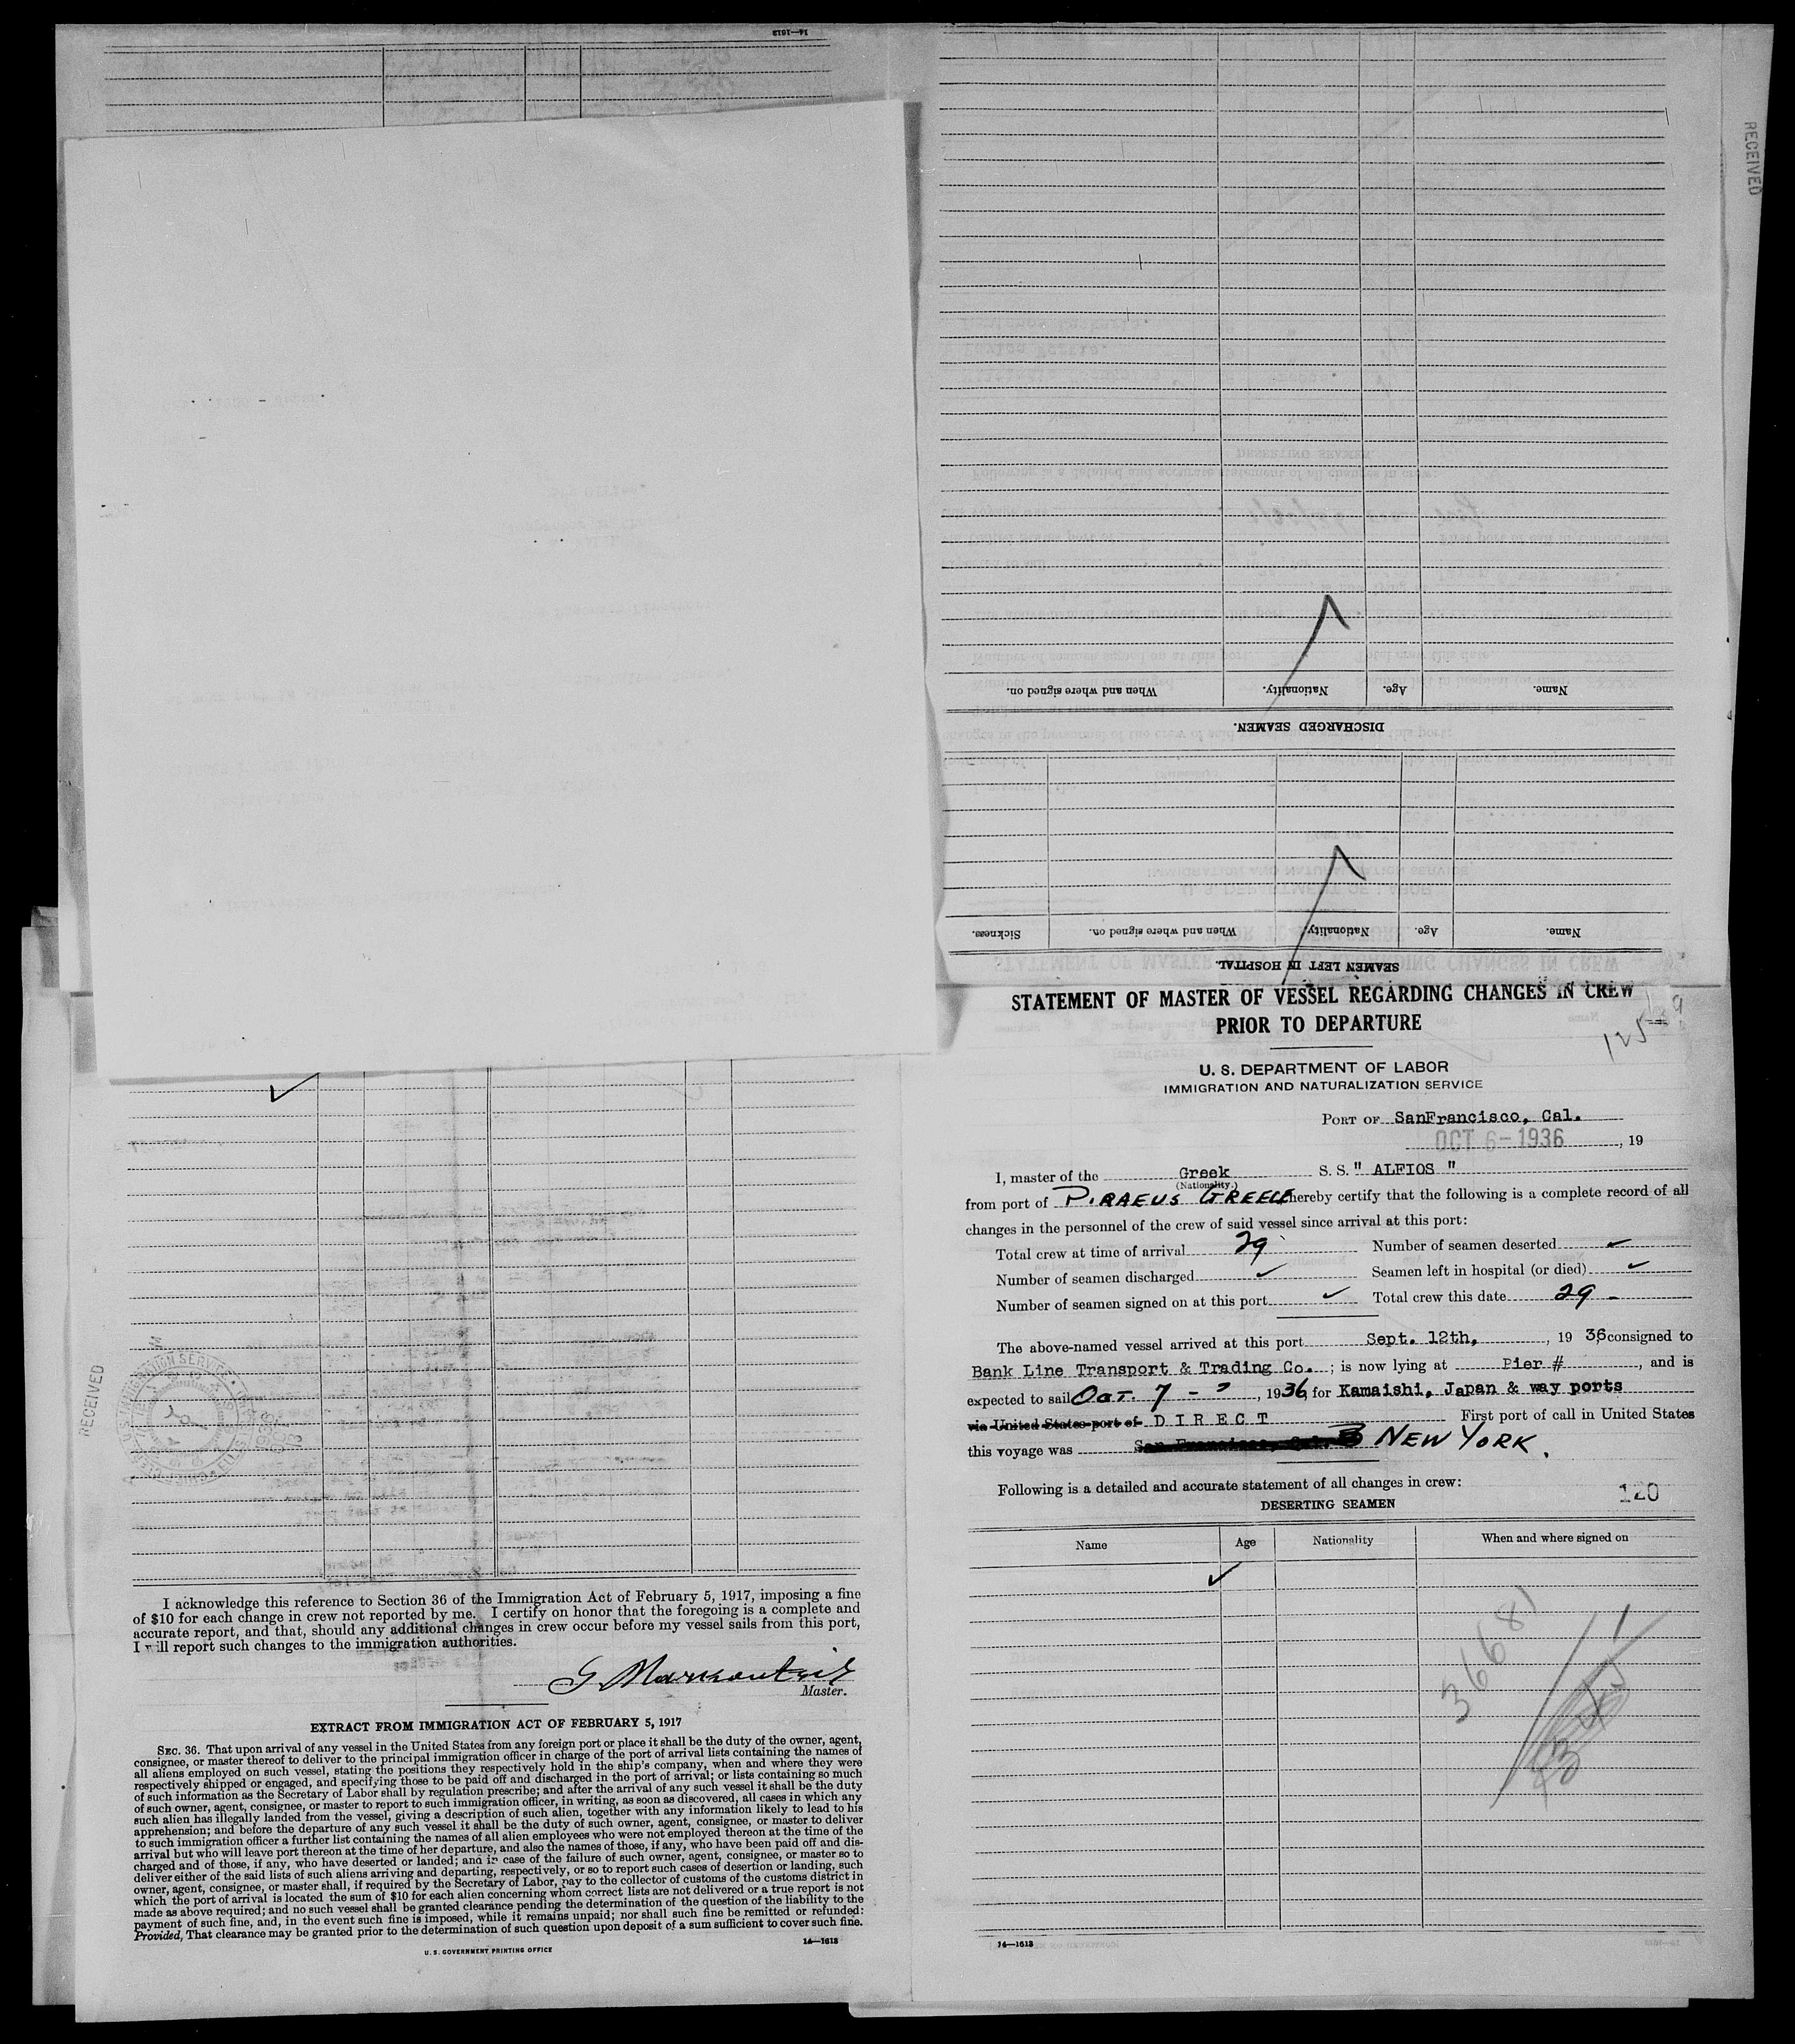 14—1613
RECEIVED
When and where signed on.
Nationality.
Age.
Name.
DISCHARGED SEAMEN.
Sickness.
When and where signed on.
Nationality.
Age.
Name.
SEAMEN LEFT IN HOSPITAL.
STATEMENT OF MASTER OF VESSEL REGARDING CHANGES IN CREW
PRIOR TO DEPARTURE
125
U. S. DEPARTMENT OF LABOR
IMMIGRATION AND NATURALIZATION SERVICE
PORT OF SanFrancisco, Cal.
OCT 6-1936, 19
I, master of the Greek S. S. " ALFIOS "
(Nationality.)
from port of PIRAEUS GREECE hereby certify that the following is a complete record of all
changes in the personnel of the crew of said vessel since arrival at this port:
Total crew at time of arrival 29 Number of seamen deserted ✓
Number of seamen discharged ✓ Seamen left in hospital (or died) ✓
Number of seamen signed on at this port ✓ Total crew this date 29 -
The above-named vessel arrived at this port Sept. 12th, , 19 36 consigned to
Bank Line Transport & Trading Co. ; is now lying at Pier # , and is
expected to sail Oct. 7 - , 1936, for Kamaishi, Japan & way ports
via United States port of DIRECT First port of call in United States
this voyage was San Francisco, Cal. NEW YORK.
Following is a detailed and accurate statement of all changes in crew:
120
DESERTING SEAMEN
Name Age Nationality When and where signed on
✓
36681
14—1613
✓
RECEIVED
I acknowledge this reference to Section 36 of the Immigration Act of February 5, 1917, imposing a fine
of $10 for each change in crew not reported by me. I certify on honor that the foregoing is a complete and
accurate report, and that, should any additional changes in crew occur before my vessel sails from this port,
I will report such changes to the immigration authorities.
Master.
EXTRACT FROM IMMIGRATION ACT OF FEBRUARY 5, 1917
SEC. 36. That upon arrival of any vessel in the United States from any foreign port or place it shall be the duty of the owner, agent,
consignee, or master thereof to deliver to the principal immigration officer in charge of the port of arrival lists containing the names of
all aliens employed on such vessel, stating the positions they respectively hold in the ship's company, when and where they were
respectively shipped or engaged, and specifying those to be paid off and discharged in the port of arrival; or lists containing so much
of such information as the Secretary of Labor shall by regulation prescribe; and after the arrival of any such vessel it shall be the duty
of such owner, agent, consignee, or master to report to such immigration officer, in writing, as soon as discovered, all cases in which any
such alien has illegally landed from the vessel, giving a description of such alien, together with any information likely to lead to his
apprehension; and before the departure of any such vessel it shall be the duty of such owner, agent, consignee, or master to deliver
to such immigration officer a further list containing the names of all alien employees who were not employed thereon at the time of the
arrival but who will leave port thereon at the time of her departure, and also the names of those, if any, who have been paid off and dis-
charged and of those, if any, who have deserted or landed; and in case of the failure of such owner, agent, consignee, or master so to
deliver either of the said lists of such aliens arriving and departing, respectively, or so to report such cases of desertion or landing, such
owner, agent, consignee, or master shall, if required by the Secretary of Labor, pay to the collector of customs of the customs district in
which the port of arrival is located the sum of $10 for each alien concerning whom correct lists are not delivered or a true report is not
made as above required; and no such vessel shall be granted clearance pending the determination of the question of the liability to the
payment of such fine, and, in the event such fine is imposed, while it remains unpaid; nor shall such fine be remitted or refunded:
Provided, That clearance may be granted prior to the determination of such question upon deposit of a sum sufficient to cover such fine.
U. S. GOVERNMENT PRINTING OFFICE
14—1613